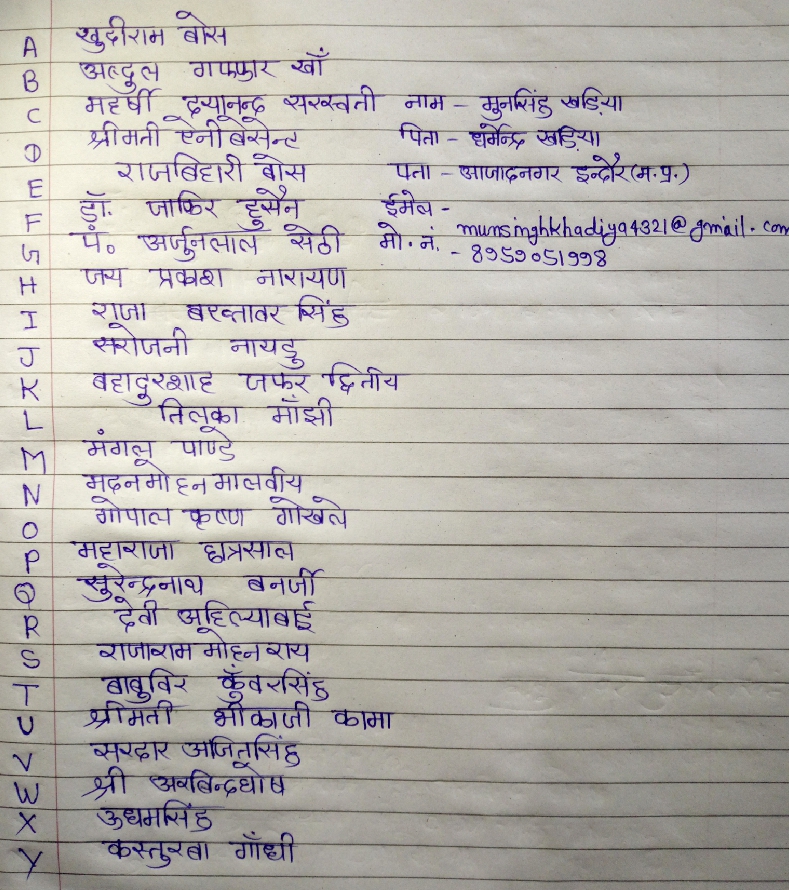 A खुदीराम बोस
B अब्दुल गफ्फार खाँ
C महर्षी दयानन्द सरस्वती नाम - मुनसिंह खड़िया
D श्रीमती ऐनीबेसेन्ट पिता - धर्मेन्द्र खड़िया
E राजबिहारी बोस पता - आजादनगर इन्दौर (म.प्र.)
F डॉ. जाकिर हुसैन ईमेल - munsinghkhadiya4321@gmail.com
G पं० अर्जुनलाल सेठी मो. नं. - 8959051998
H जय प्रकाश नारायण
I राजा बख्तावर सिंह
J सरोजनी नायडु
K बहादुरशाह जफर द्वितीय
L तिलका माँझी
M मंगल पाण्डे
N मदनमोहन मालवीय
O गोपाल कृष्ण गोखले
P महाराजा छत्रसाल
Q सुरेन्द्रनाथ बनर्जी
R देवी अहिल्याबाई
S राजाराम मोहन राय
T बाबुविर कुँवरसिंह
U श्रीमती भीकाजी कामा
V सरदार अजितसिंह
W श्री अरबिन्दघोष
X ऊधमसिंह
Y कस्तुरबा गाँधी